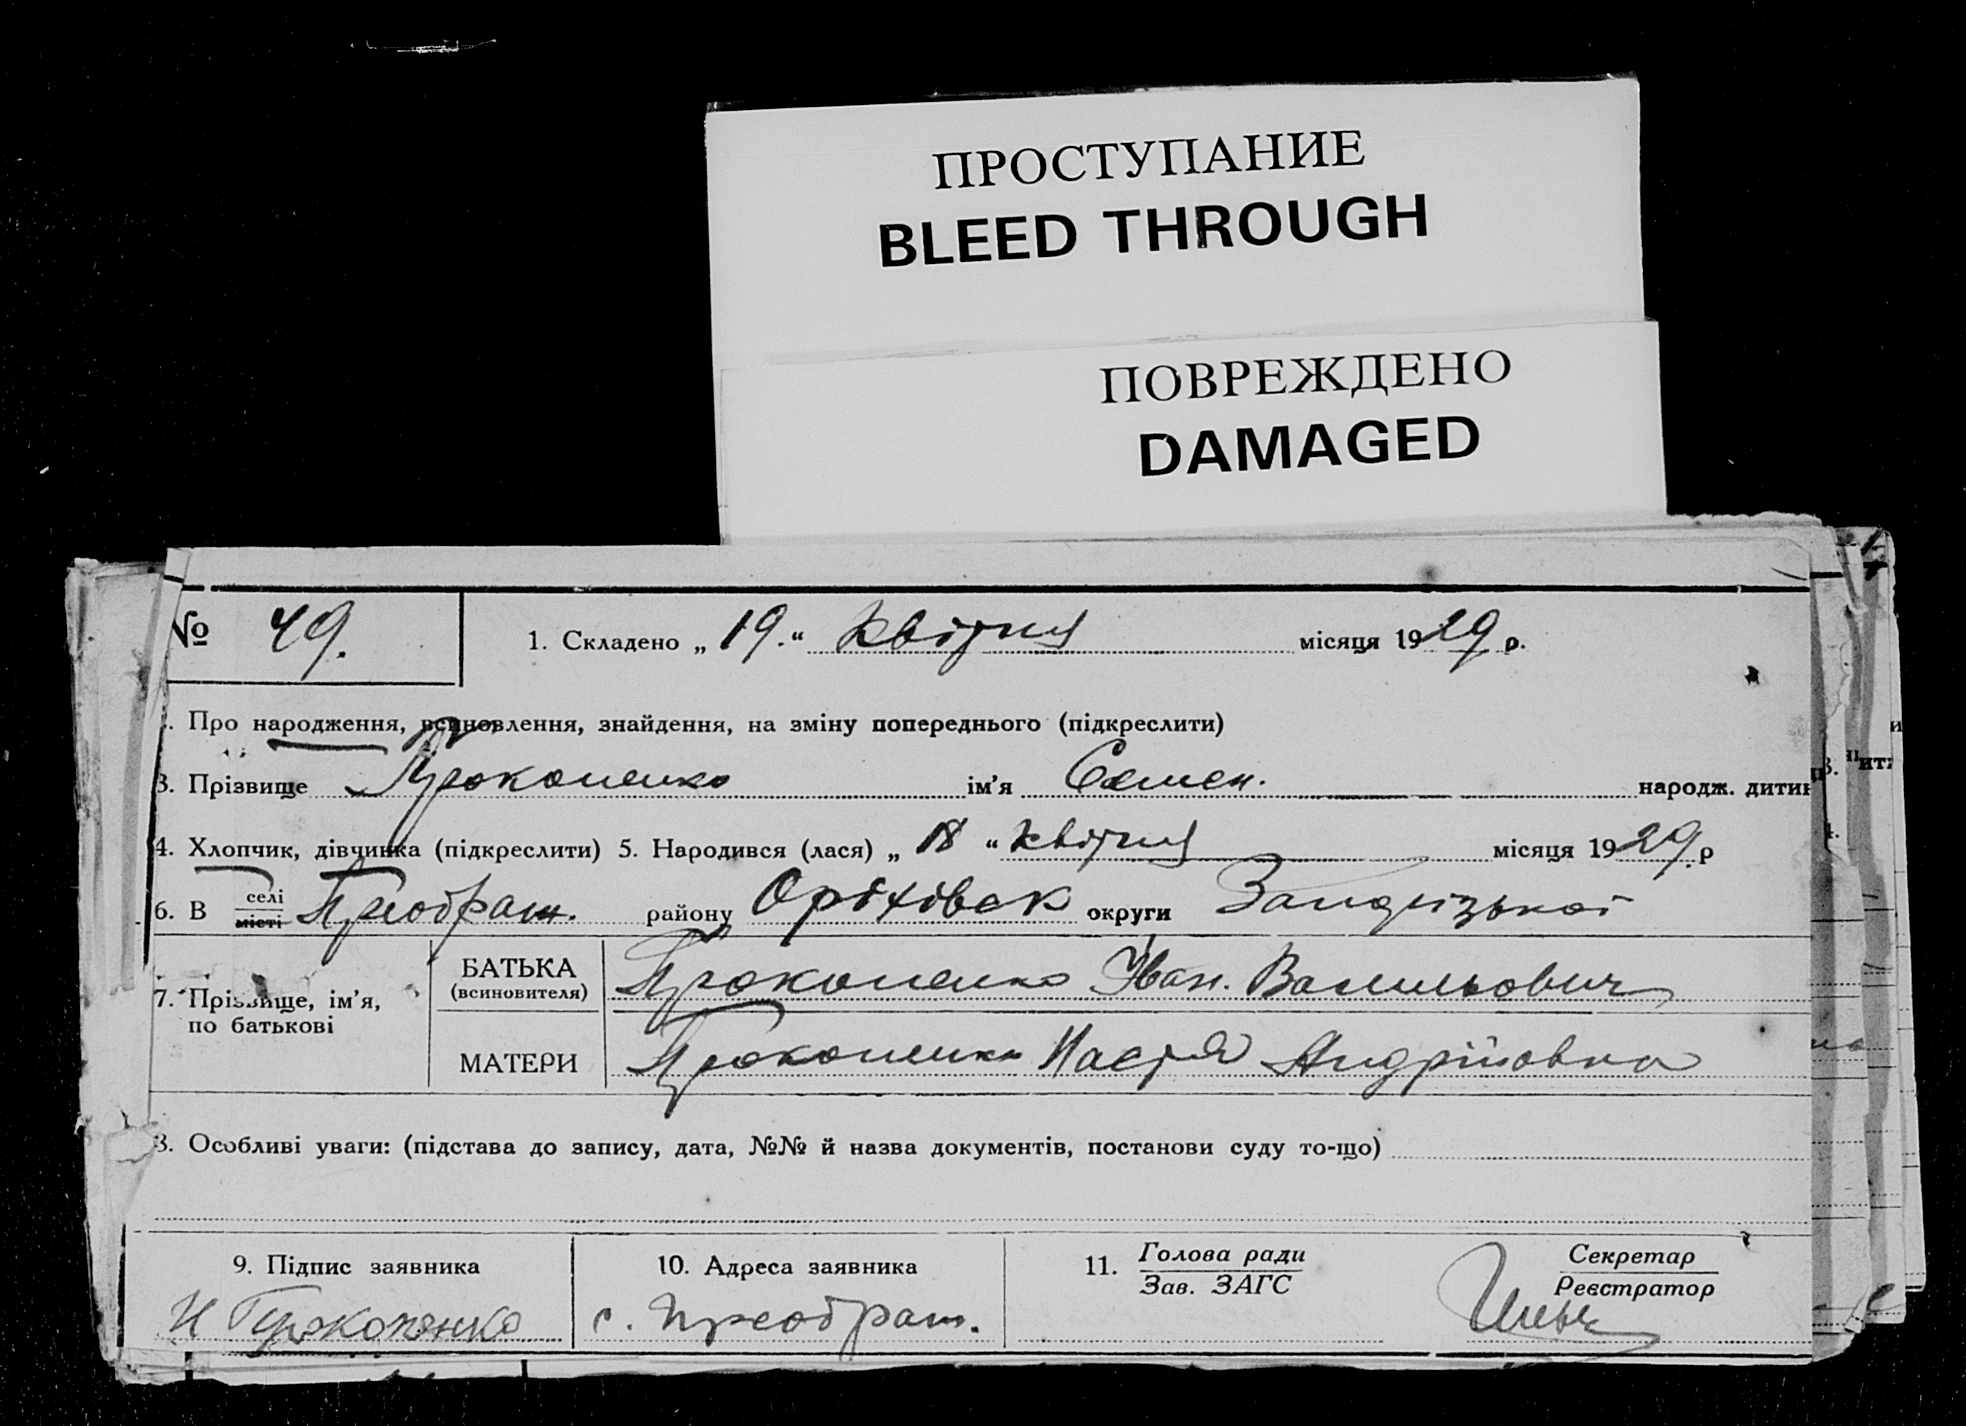 ПРОСТУПАНИЕ
BLEED THROUGH
ПОВРЕЖДЕНО
DAMAGED
№ 49.
1. Складено „ 19. “ Квітня місяця 1929 р.
Про народження, всиновлення, знайдення, на зміну попереднього (підкреслити)
3. Прізвище Прокопенко ім’я Семен. народж. дитин
4. Хлопчик, дівчинка (підкреслити) 5. Народився (лася) „ 18 “ квітня місяця 1929 р
6. В селі місті Преображ. району Оріхівск округи Запорізької
7. Прізвище, ім’я, по батькові
БАТЬКА (всиновителя) Прокопенко Іван. Васильович
МАТЕРИ Прокопенко Настя Андрійовна
8. Особливі уваги: (підстава до запису, дата, №№ й назва документів, постанови суду то-що)
9. Підпис заявника
10. Адреса заявника
11. Голова ради
Зав. ЗАГС
Секретар
Реєстратор
И Прокопенко
с. Преображ.